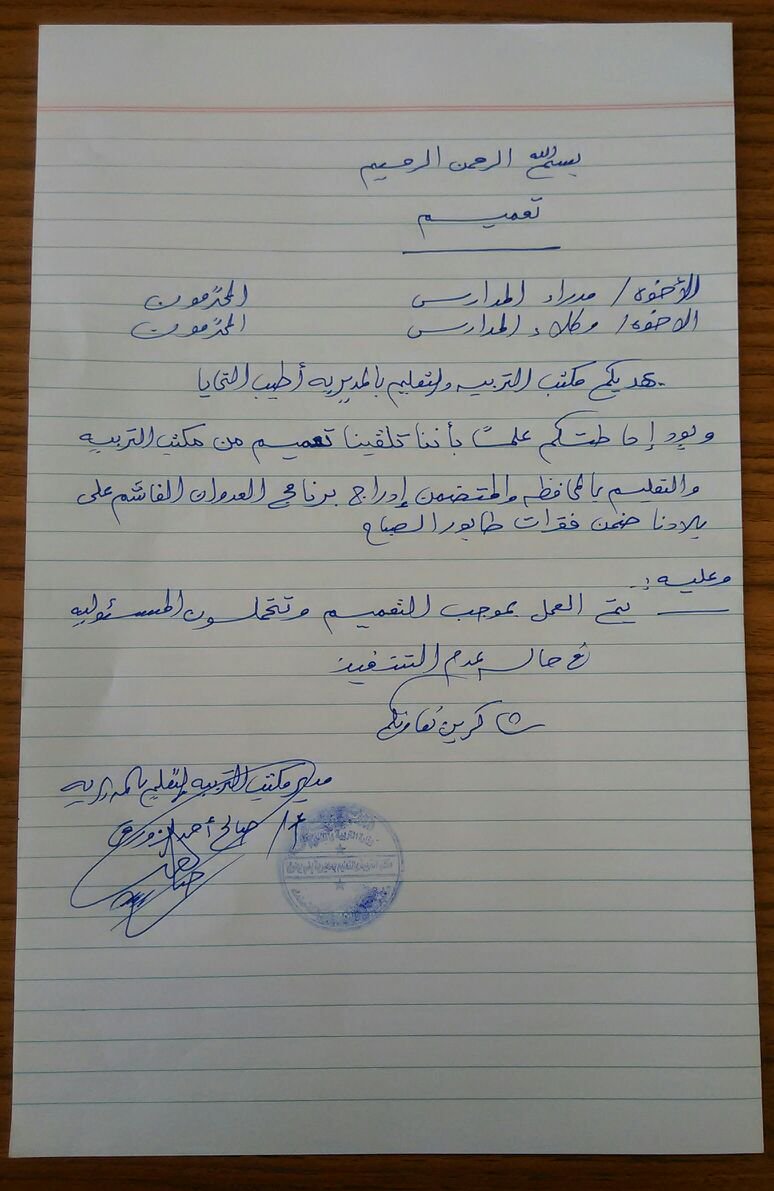 بسم الله الرحمن الرحيم
تعميم
الأخوه / مدراء المدارس المحترمون
الاخوه / وكلاء المدارس المحترمون
يهديكم مكتب التربيه والتعليم بالمديريه أطيب التحايا
ويود إحاطتكم علماً بأننا تلقينا تعميم من مكتب التربيه
والتعليم بالمحافظه والمتضمن إدراج برنامج العدوان الغاشم على
بلادنا ضمن فقرات طابور الصباح
وعليه :
يتم العمل بموجب التعميم وتتحملون المسئوليه
في حال عدم التنفيذ
شاكرين تعاونكم
مدير مكتب التربيه والتعليم بالمديريه
أ / صالح أحمد